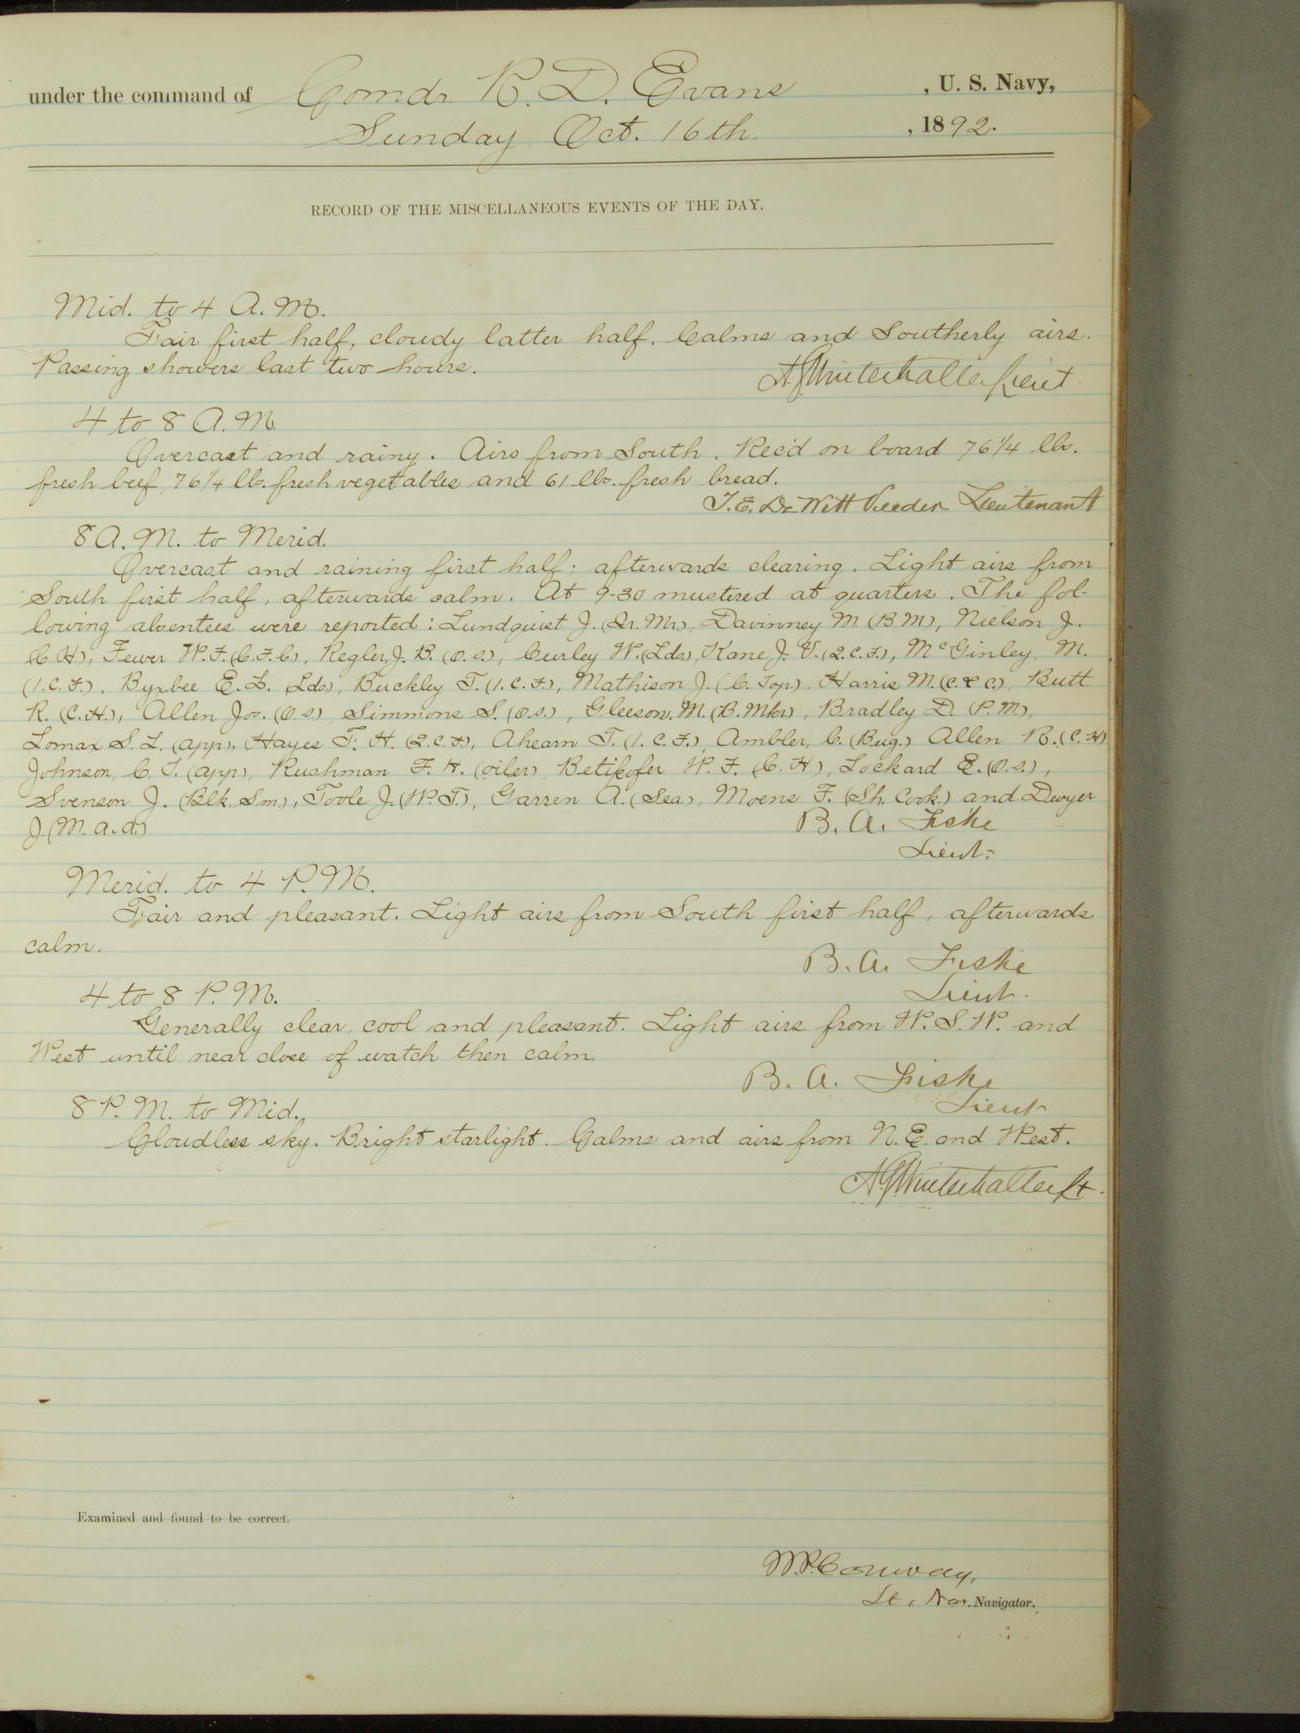 under the command of Comdr. R. D. Evans , U. S. Navy,
Sunday Oct. 16th. , 1892.
RECORD OF THE MISCELLANEOUS EVENTS OF THE DAY.
Mid. to 4 A.M.
Fair first half, cloudy latter half. Calms and Southerly airs.
Passing showers last two hours.
A.G. Winterhalter Lieut
4 to 8 A.M.
Overcast and rainy. Airs from South. Rec'd on board 76 1/4 lbs.
fresh beef, 76 1/4 lb. fresh vegetables and 61 lbs. fresh bread.
T.E. De Witt Veeder Lieutenant
8 A.M. to Merid.
Overcast and raining first half; afterwards clearing. Light airs from
South first half, afterwards calm. At 9-30 mustered at quarters. The fol-
lowing absentees were reported: Lundquist J. (Sr. Mr.), Davinney M. (B.M), Nielson J.
(C.H), Fewer W.F. (C.F.C), Regler, J. B. (O.S.), Curley W. (Lds), Kane J. V. (2.C.F.), McGinley, M.
(1.C.F.), Byxbee E. L. (Lds), Buckley T. (1.C.F), Mathison J. (C. Top), Harris M. (C.& C.), Butt
R. (C.H.), Allen Jos. (O.S), Simmons S. (O.S.), Gleeson, M. (B.Mkr), Bradley D. (P.M),
Lomax S. L. (App), Hayes T. H. (2.C.F), Ahearn T. (1.C.F.), Ambler, C. (Bug.) Allen R. (C.H)
Johnson, C. T. (App), Rushman F. H. (Oiler), Betikofer W. F. (C.H), Lockard E. (O.S.),
Svenson J. (Blk. Sm), Toole J. (W.T.), Garren A. (Sea), Moens F. (Sh. Cook.) and Dwyer
J. (M.a.a.)
B. A. Fiske
Lieut.
Merid. to 4 P.M.
Fair and pleasant. Light airs from South first half, afterwards
calm.
B. A. Fiske
Lieut.
4 to 8 P.M.
Generally clear, cool and pleasant. Light airs from W.S.W. and
West until near close of watch then calm.
B. A. Fiske
Lieut
8 P.M. to Mid.
Cloudless sky. Bright starlight. Calms and airs from N.E. and West.
A.G. Winterhalter Lt.
Examined and found to be correct.
W.P. Conway,
Lt. Nav. Navigator.